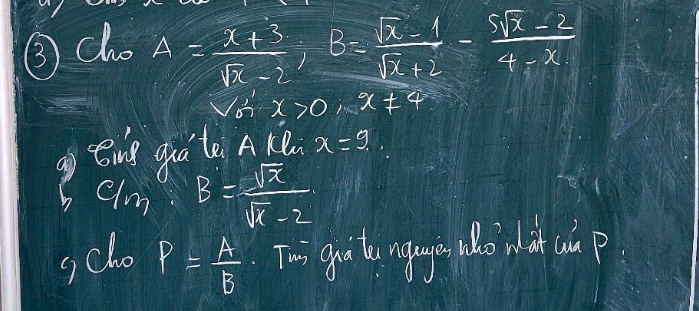 ③ Cho A = \frac{x+3}{\sqrt{x}-2}; B = \frac{\sqrt{x}-1}{\sqrt{x}+2} - \frac{5\sqrt{x}-2}{4-x}
Với x > 0, x ≠ 4
a) Tính giá trị A khi x = 9.
b, C/m: B = \frac{\sqrt{x}}{\sqrt{x}-2}.
c, Cho P = \frac{A}{B}. Tìm giá trị nguyên nhỏ nhất của P.